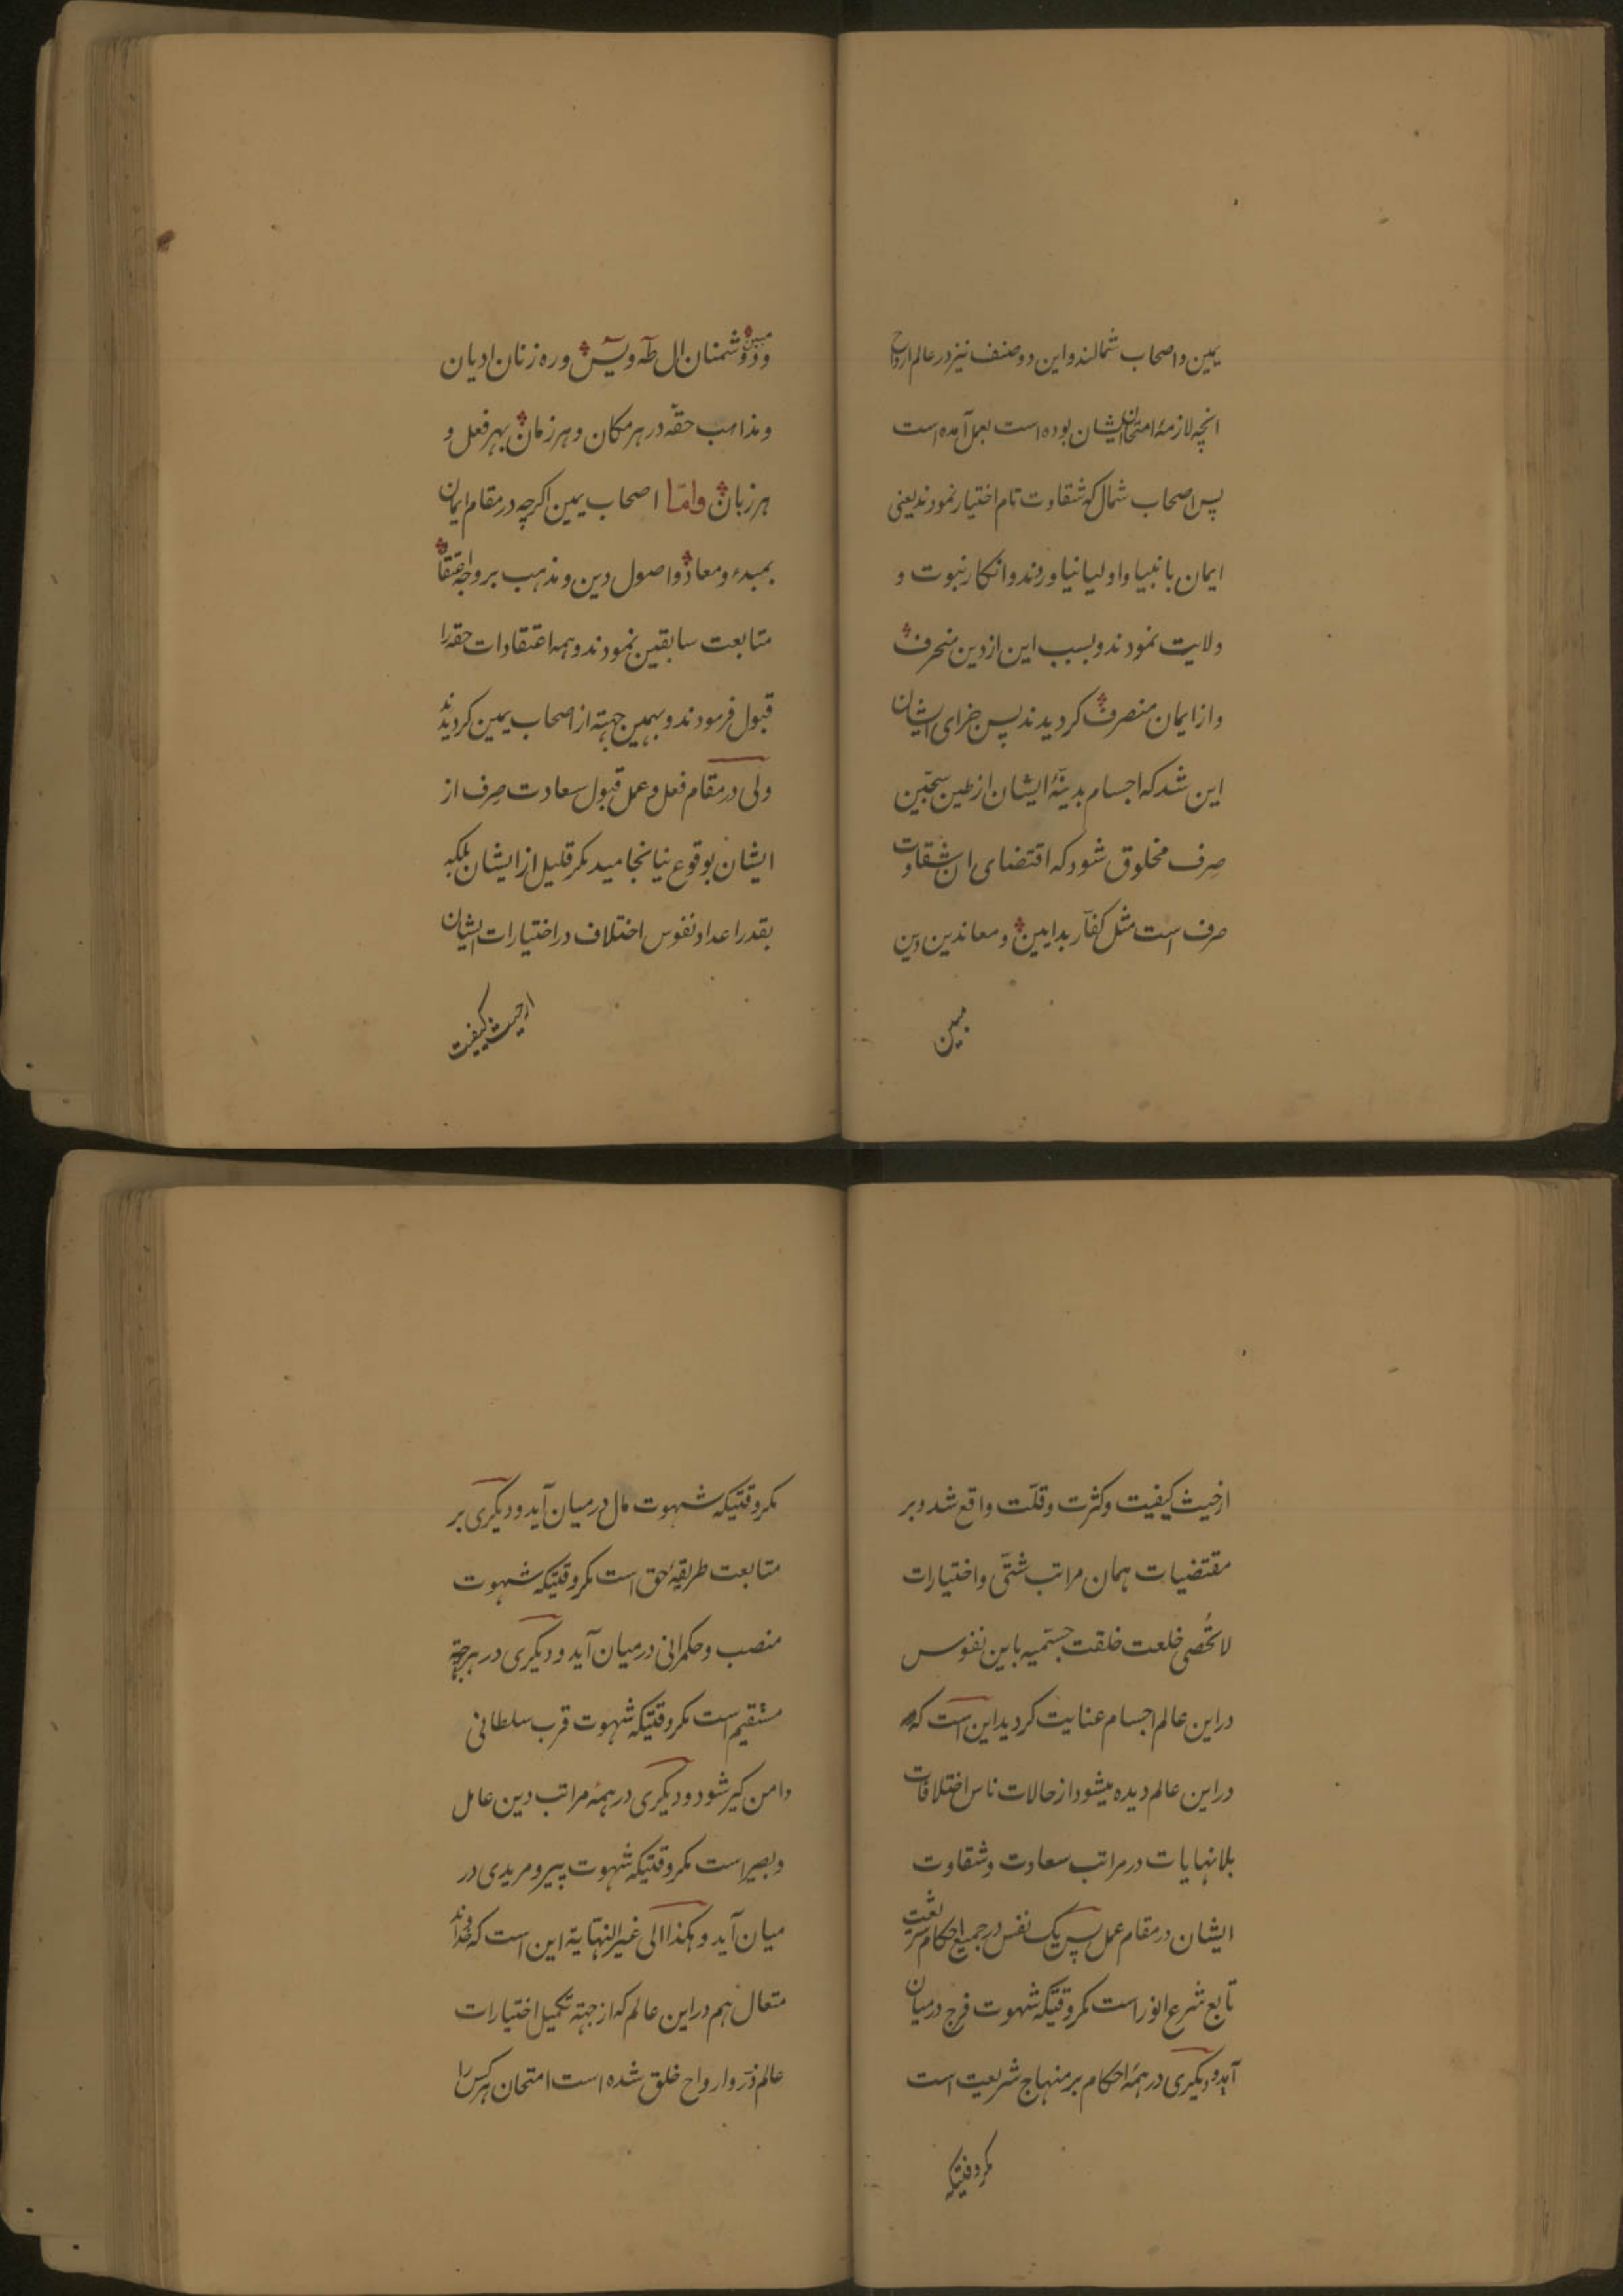 یمین و اصحاب شمالند و این دو صنف نیز در عالم ارواح
انچه لازمهٔ امتحان ایشان بوده است بعمل آمده است
پس اصحاب شمال که شقاوت تام اختیار نمودند یعنی
ایمان بانبیا و اولیا نیاوردند و انکار نبوت و
ولایت نمودند و بسبب این از دین منحرف
و از ایمان منصرف کردیدند پس جزای ایشان
این شد که اجسام بدینهٔ ایشان از طین سجّین
صِرف مخلوق شود که اقتضای ان شقاوت
صرف است مثل کفّار بدایین و معاندین دین
مبین
مبین و دشمنان ال طٓه و یٓس و ره زنان ادیان
و مذاهب حقّه در هر مکان و هر زمان بهر فعل و
هر زبان وامّا اصحاب یمین اکرچه در مقام ایمان
بمبدء و معاد و اصول دین و مذهب بر وجه اعتقاد
متابعت سابقین نمودند و همه اعتقادات حقه را
قبول فرمودند و بهمین جهته از اصحاب یمین کردیدند
ولی در مقام فعل و عمل قبول سعادت صِرف از
ایشان بوقوع نیانجامید مکر قلیل از ایشان بلکه
بقدر اعداد نفوس اختلاف در اختیارات ایشان
از حیث کیفیت
از حیث کیفیت و کثرت و قلّت واقع شد و بر
مقتضیات همان مراتب شتّی و اختیارات
لا تُحصی خلعت خلقت جسمیّه باین نفوس
در این عالم اجسام عنایت کردید این است که
در این عالم دیده میشود از حالات ناس اختلافات
بلا نهایات در مراتب سعادت و شقاوت
ایشان در مقام عمل پس یک نفس در جمیع احکام شریعت
تابع شرع انور است مکر وقتیکه شهوت فرج در میان
آید و دیکری در همهٔ احکام بر منهاج شریعت است
مکر وقتیکه
مکر وقتیکه شهوت مال در میان آید و دیکری بر
متابعت طریقهٔ حق است مکر وقتیکه شهوت
منصب و حکمرانی در میان آید و دیکری در هر جهة
مستقیم است مکر وقتیکه شهوت قرب سلطانی
دامن کیر شود و دیکری در همهٔ مراتب دین عامل
و بصیر است مکر وقتیکه شهوت پیر و مریدی در
میان آید و هکذا الی غیر النّهایة این است که خداوند
متعال هم در این عالم که از جهته تکمیل اختیارات
عالم ذرّ و ارواح خلق شده است امتحان هر کس را